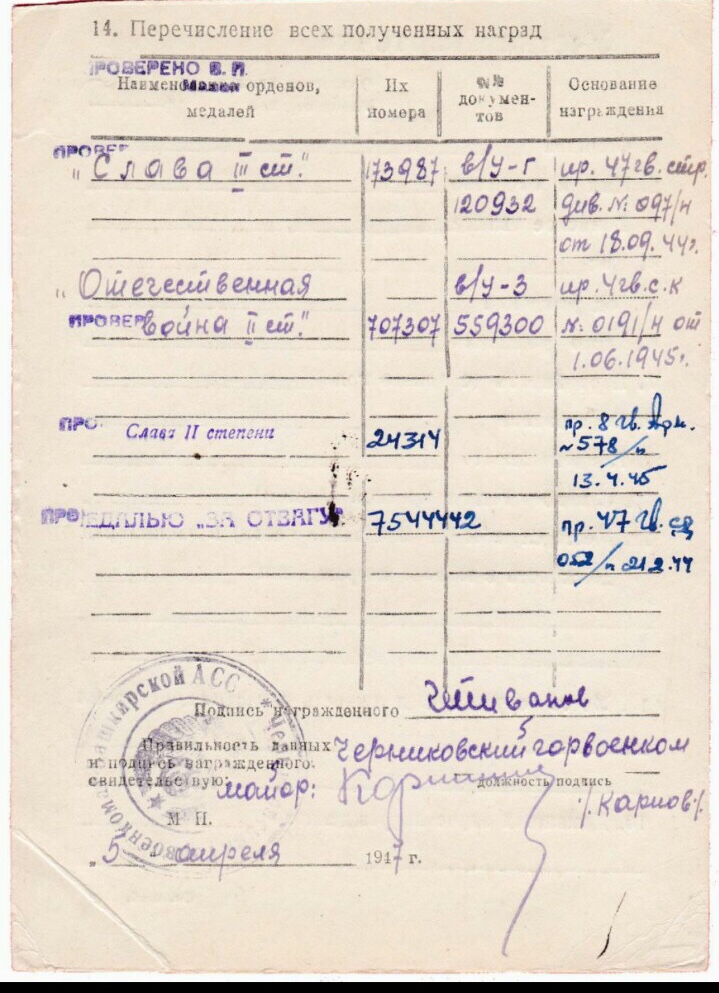 14. Перечисление всех полученных наград
ПРОВЕРЕНО В. П.
Наименование орденов, медалей
Их номера
№№ документов
Основание награждения
ПРОВЕР
"Слава III ст." 173987 в/у-г пр. 47 гв. стр.
120932 див. №: 097/н
от 18.09.44г.
"Отечественная в/у-3 пр. 4 гв. с. к
ПРОВЕР война II ст." 707307 559300 №: 0191/н от
1.06.1945г.
ПРО Слава II степени 24314 пр. 8 гв. Арм.
№578/н
13.4.45
ПРО МЕДАЛЬЮ „ЗА ОТВАГУ" 7544442 пр. 47 гв. сд
052/н 21.2.44
Подпись награжденного
Правильность данных Черниковский горвоенком
и подпись награжденного
свидетельствую: майор: должность, подпись
/Карпов/.
М П.
„5" апреля 1947 г.
Башкирской АСС